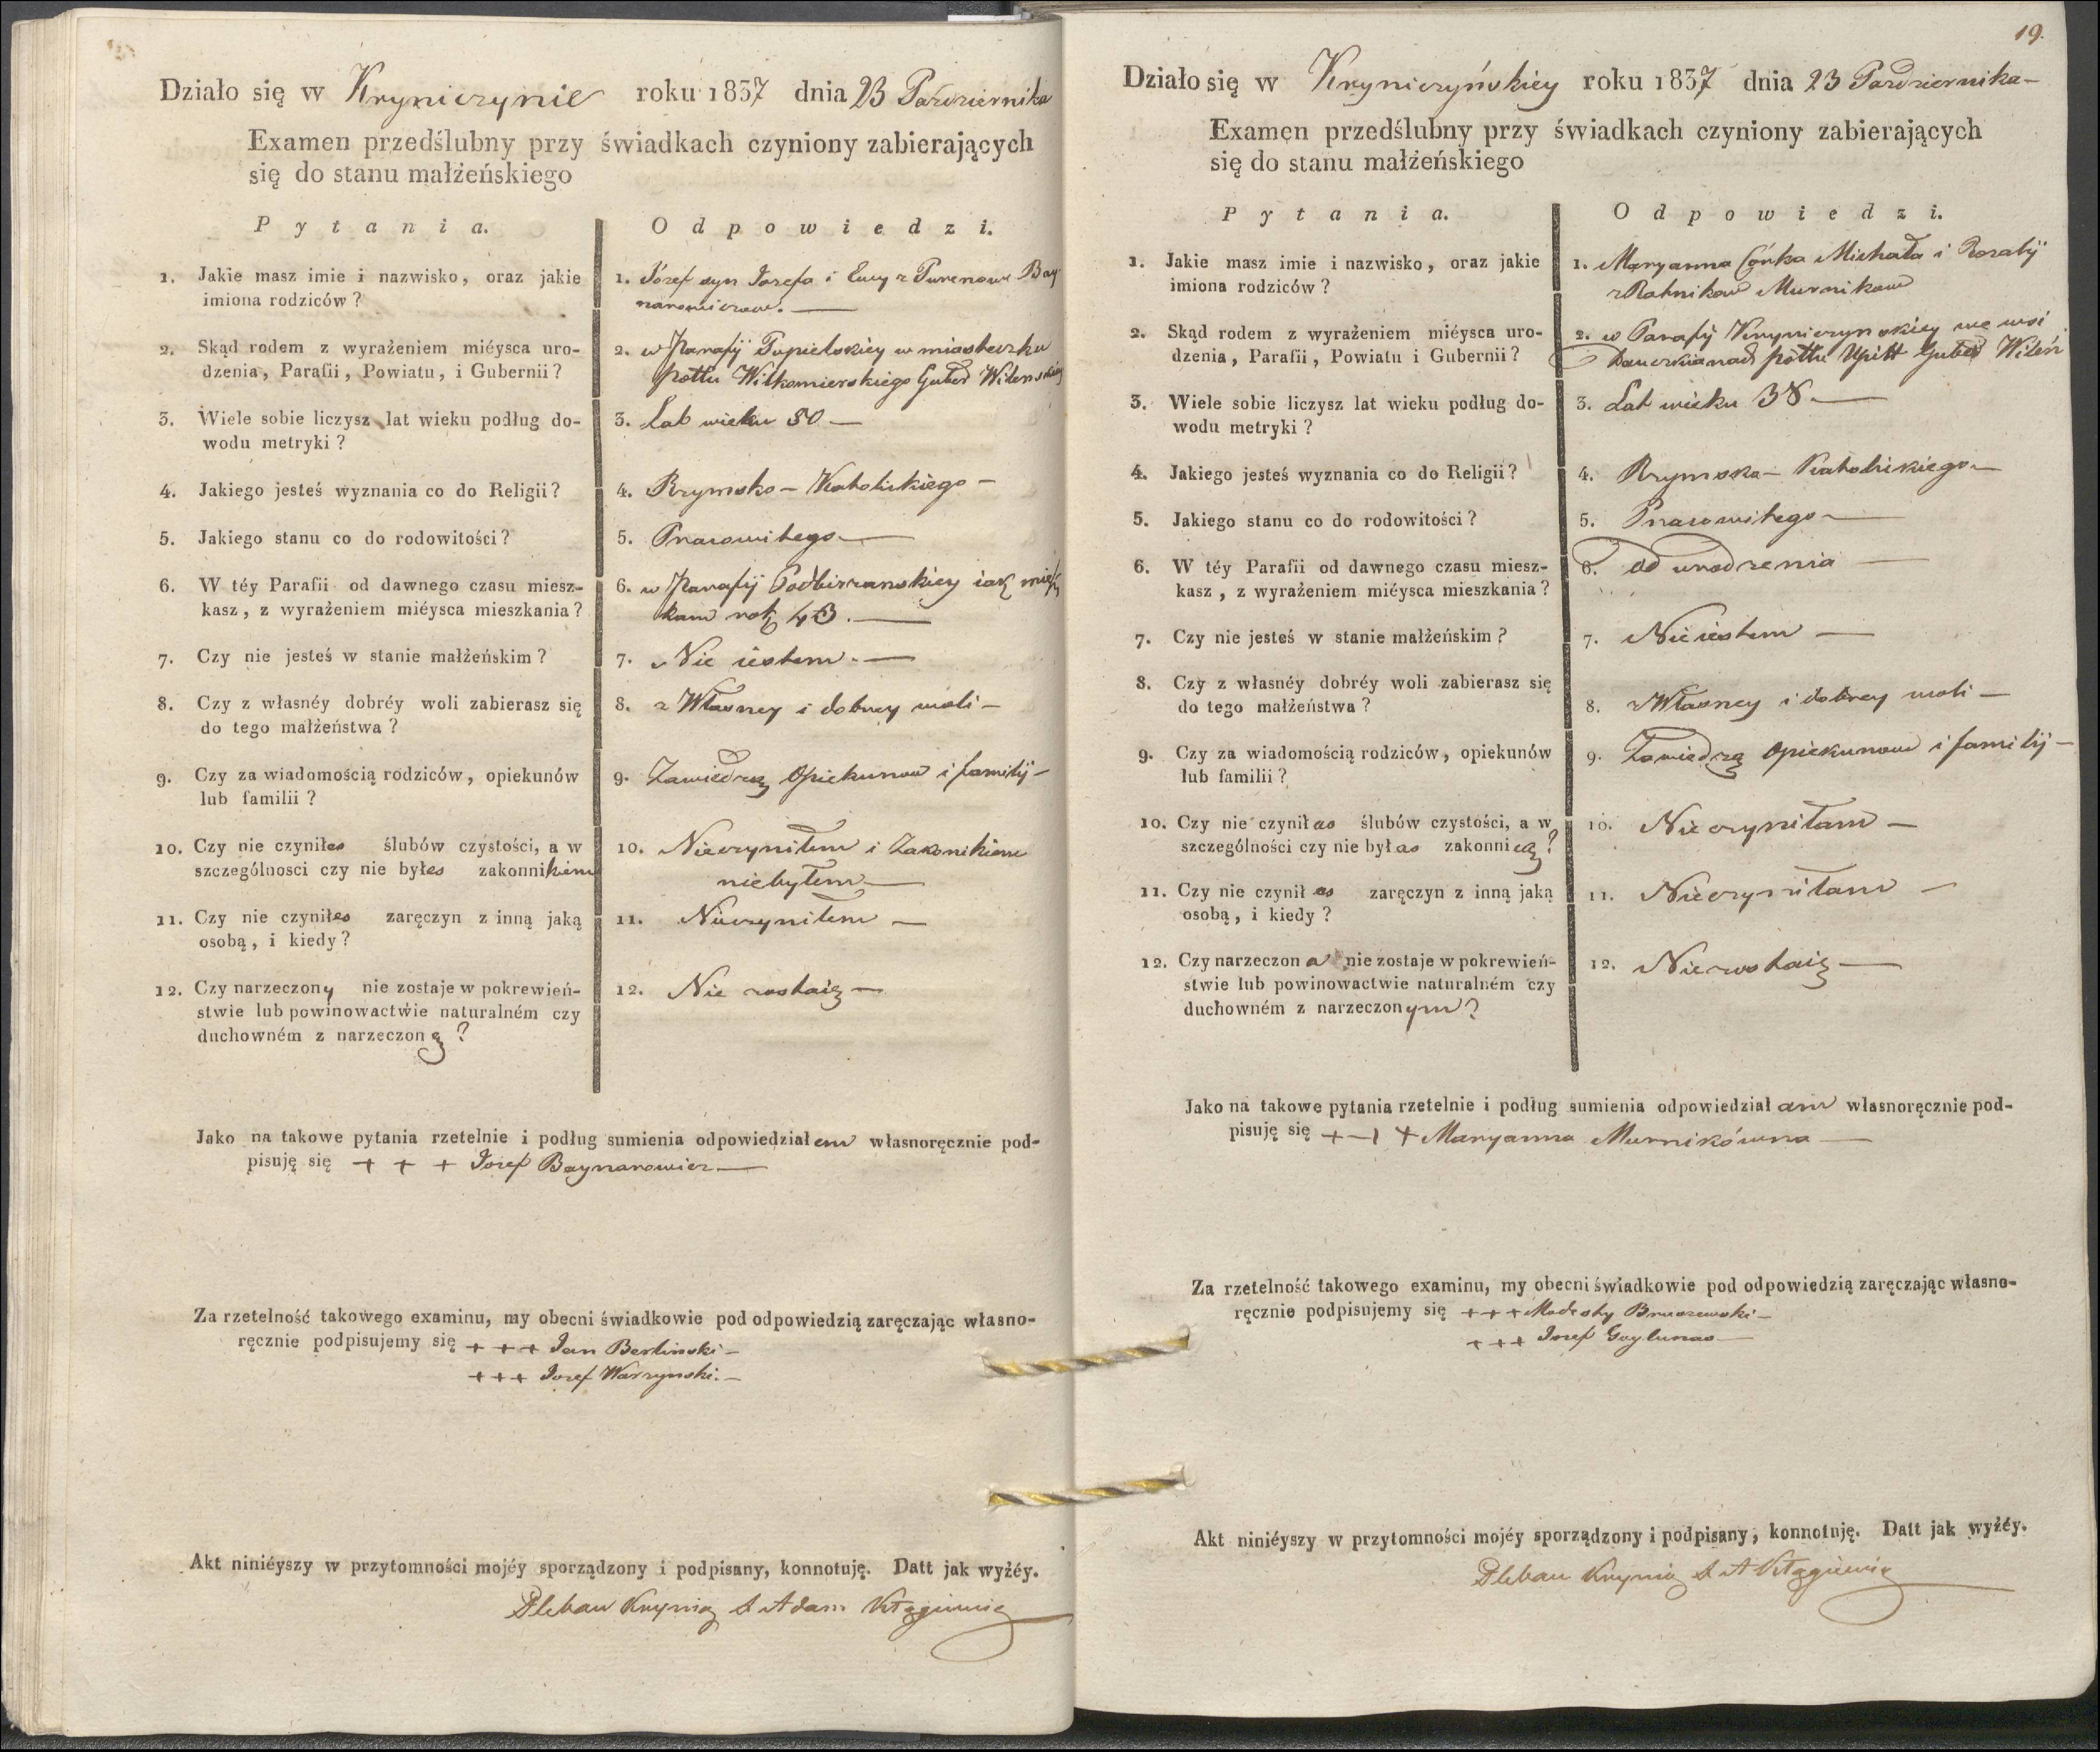 Działo się w Kryniczynie roku 1837 dnia 23 Pazdziernika
Examen przedślubny przy świadkach czyniony zabierających
się do stanu małżeńskiego
Pytania.
Odpowiedzi.
1. Jakie masz imie i nazwisko, oraz jakie
imiona rodziców?
1. Józef syn Jozefa i Ewy z Purenow Bay
narowiczow.—
2. Skąd rodem z wyrażeniem miéysca uro-
dzenia, Parafii, Powiatu, i Gubernii?
2. w Parafij Popielskiey w miasteczku
pottu Wilkomierskiego Guber Wilenskiey
3. Wiele sobie liczysz lat wieku podług do-
wodu metryki?
3. Lat wieku 50—
4. Jakiego jesteś wyznania co do Religii?
4. Rzymsko-Katolickiego—
5. Jakiego stanu co do rodowitości?
5. Pracowitego—
6. W téy Parafii od dawnego czasu miesz-
kasz, z wyrażeniem miéysca mieszkania?
6. w Parafij Podbirzanskiey iak miesz
kam rok 43.—
7. Czy nie jesteś w stanie małżeńskim?
7. Nie iestem.—
8. Czy z własnéy dobréy woli zabierasz się
do tego małżeństwa?
8. z Własney i dobrey woli—
9. Czy za wiadomością rodziców, opiekunów
lub familii?
9. Zawiedzą Opiekunow i familij—
10. Czy nie czyniłes ślubów czystości, a w
szczególnosci czy nie byłes zakonnikiem
10. Nieczyniłem i Zakonikiem
niebyłem—
11. Czy nie czyniłes zaręczyn z inną jaką
osobą, i kiedy?
11. Nieczyniłem—
12. Czy narzeczony nie zostaje w pokrewień-
stwie lub powinowactwie naturalném czy
duchowném z narzeczoną?
12. Nie zostaię—
Jako na takowe pytania rzetelnie i podług sumienia odpowiedziałem własnoręcznie pod-
pisuję się + + + Jozef Baynarowicz—
Za rzetelność takowego examinu, my obecni świadkowie pod odpowiedzią zaręczając własno-
ręcznie podpisujemy się + + + Jan Berlinski—
+ + + Jozef Warzynski.—
Akt niniéyszy w przytomności mojéy sporządzony i podpisany, konnotuję. Datt jak wyżéy.
Pleban Krynicz X Adam
19.
Działo się w Kryniczyńskiey roku 1837 dnia 23 Pazdziernika—
Examen przedślubny przy świadkach czyniony zabierających
się do stanu małżeńskiego
Pytania.
Odpowiedzi.
1. Jakie masz imie i nazwisko, oraz jakie
imiona rodziców?
1. Maryanna Córka Michała i Rozalij
z Ratnikow Murnikow
2. Skąd rodem z wyrażeniem miéysca uro-
dzenia, Parafii, Powiatu i Gubernii?
2. w Parafij Kryniczynskiey we wsi
pottu Upitt Guber Wileń
3. Wiele sobie liczysz lat wieku podług do-
wodu metryki?
3. Lat wieku 38.—
4. Jakiego jesteś wyznania co do Religii?
4. Rzymska-Katolickiego—
5. Jakiego stanu co do rodowitości?
5. Pracowitego—
6. W téy Parafii od dawnego czasu miesz-
kasz, z wyrażeniem miéysca mieszkania?
6. Od urodzenia—
7. Czy nie jesteś w stanie małżeńskim?
7. Nieiestem—
8. Czy z własnéy dobréy woli zabierasz się
do tego małżeństwa?
8. z Własney i dobrey woli—
9. Czy za wiadomością rodziców, opiekunów
lub familii?
9. Zawiedzą Opiekunow i familij—
10. Czy nie czyniłas ślubów czystości, a w
szczególności czy nie byłas zakonnicą?
10. Nieczyniłam—
11. Czy nie czyniłas zaręczyn z inną jaką
osobą, i kiedy?
11. Nieczyniłam—
12. Czy narzeczona nie zostaje w pokrewień-
stwie lub powinowactwie naturalném czy
duchowném z narzeczonym?
12. Niezostaię—
Jako na takowe pytania rzetelnie i podług sumienia odpowiedziałam własnoręcznie pod-
pisuję się + + + Maryanna Murnikówna—
Za rzetelność takowego examinu, my obecni świadkowie pod odpowiedzią zaręczając własno-
ręcznie podpisujemy się + + + Modesty Bruszewski—
+ + + Jozef Gaylunas—
Akt niniéyszy w przytomności mojéy sporządzony i podpisany, konnotuję. Datt jak wyżéy.
Pleban Krynicz X A